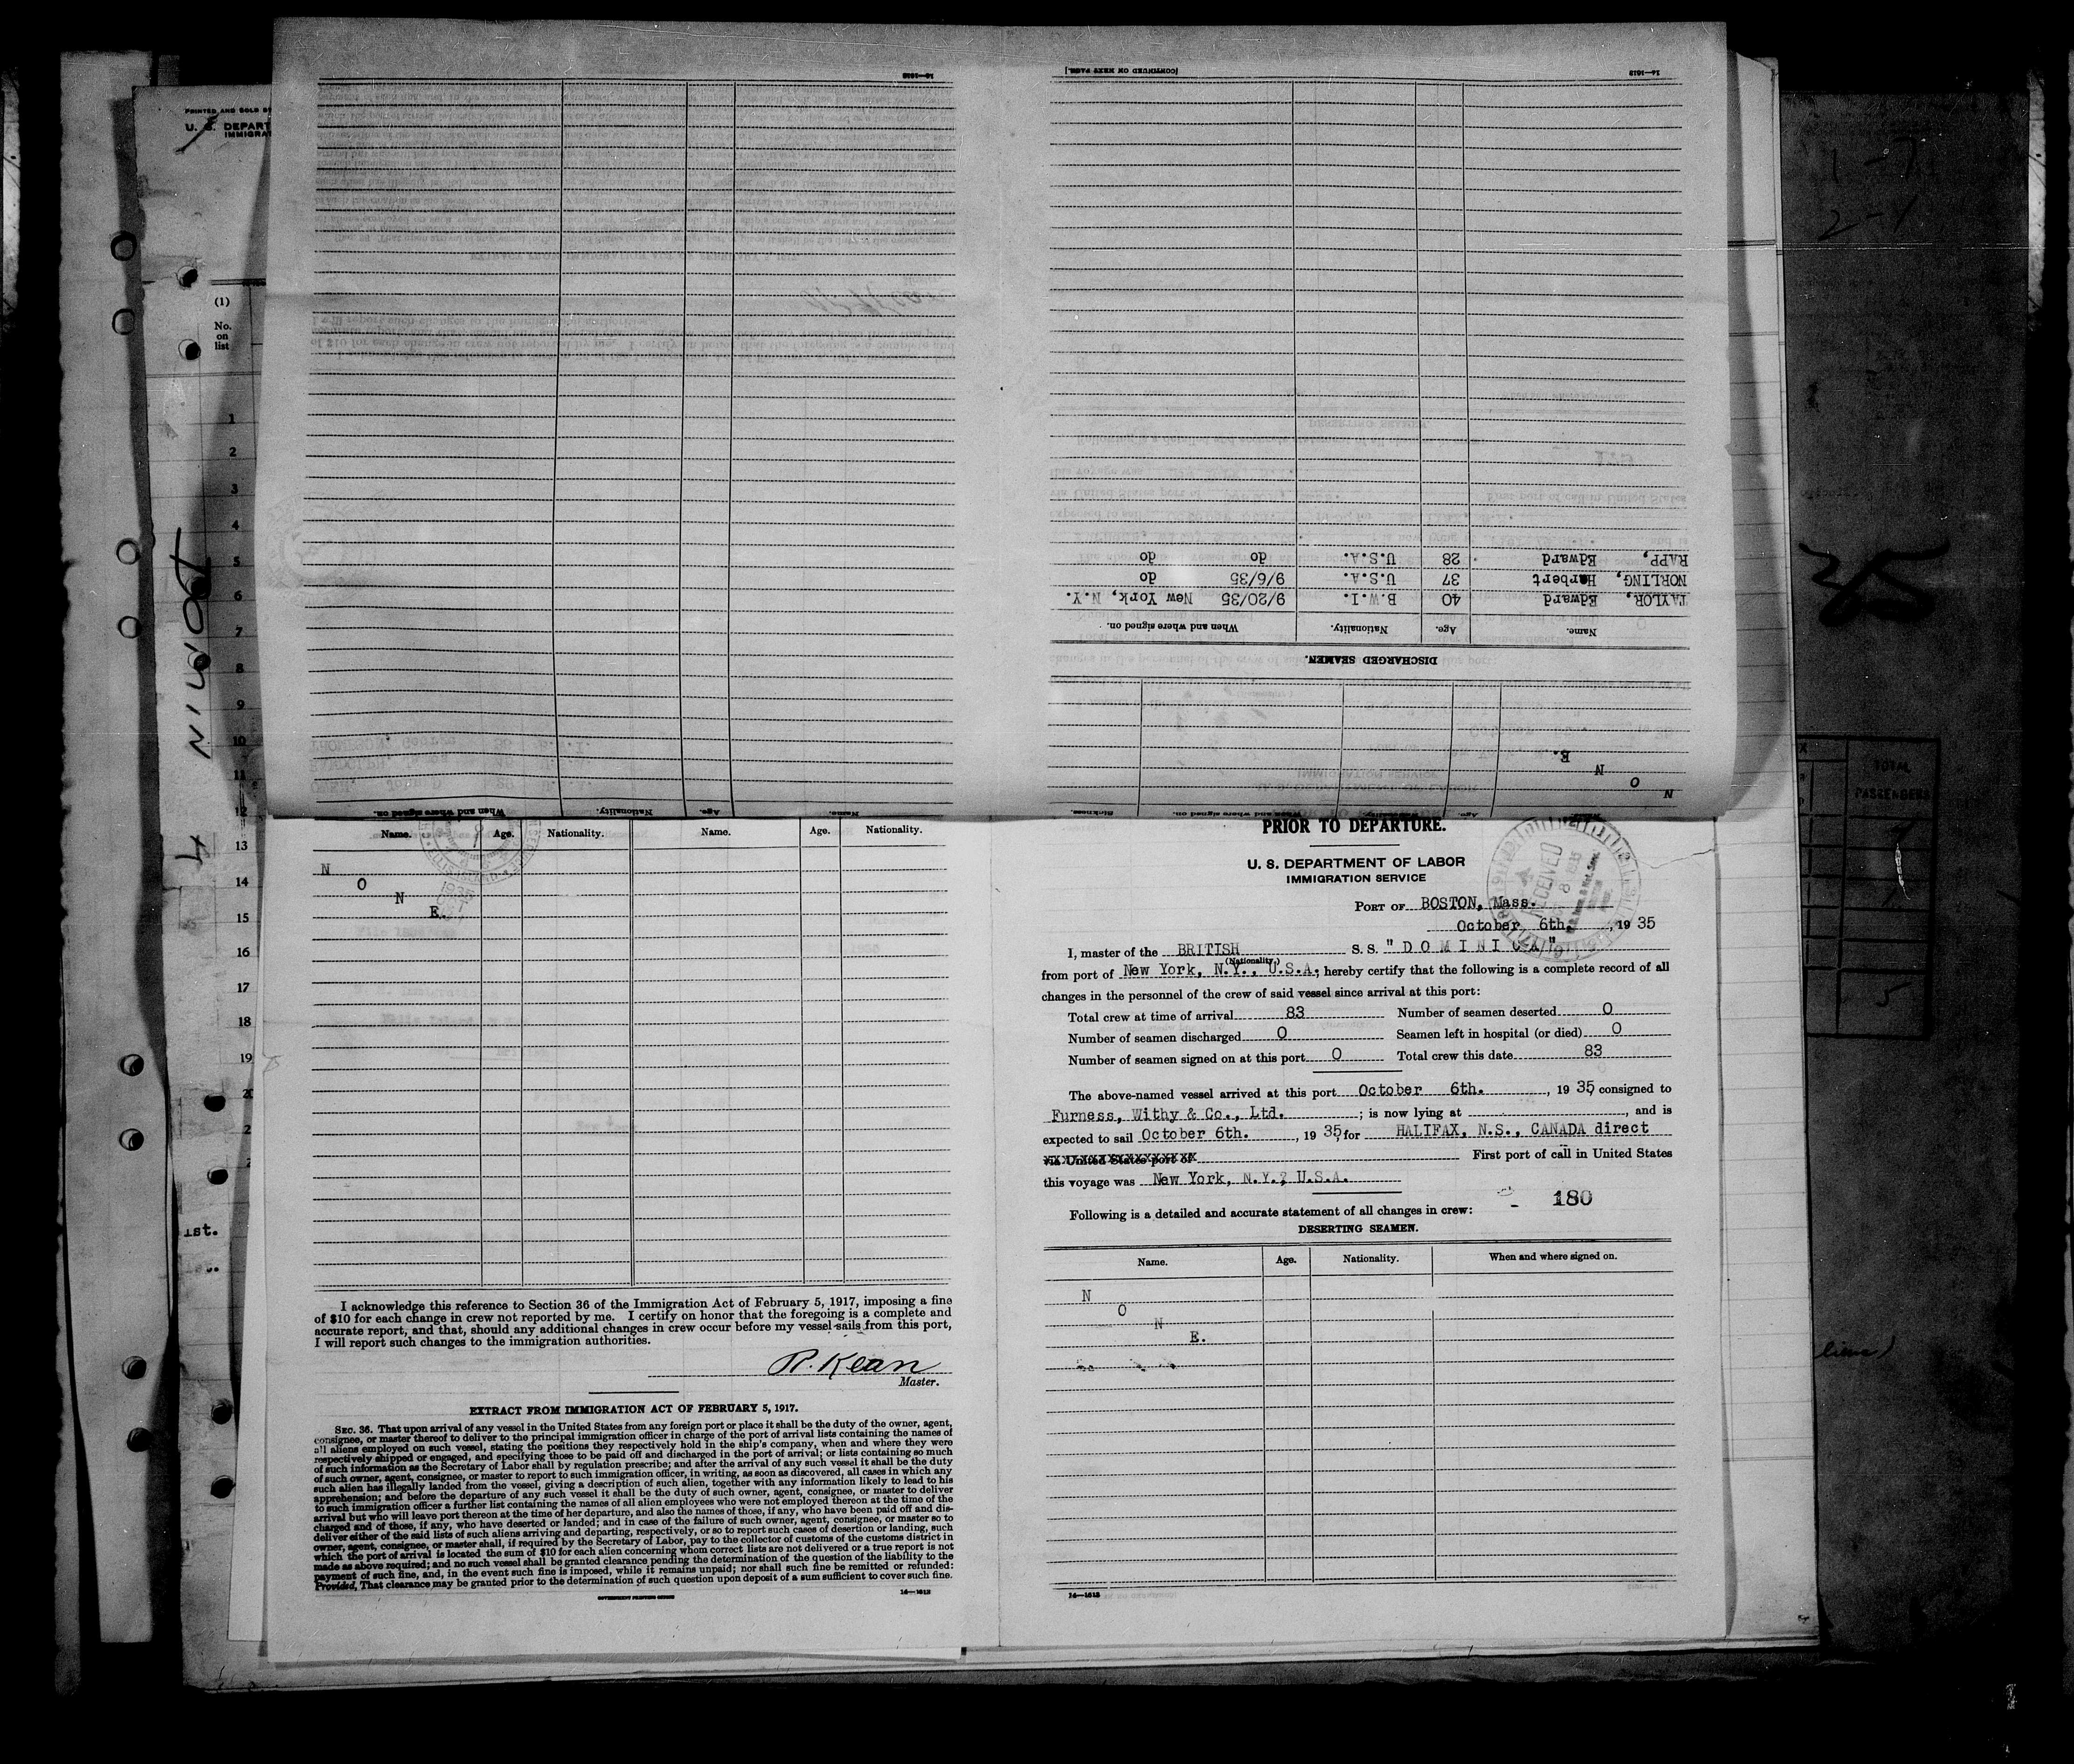 PRINTED AND SOLD BY
U. S. DEPART
IMMIGRA
(1)
No.
on
list
1
2
3
4
5
6
7
8
9
10
11
12
13
14
15
16
17
18
19
20
2
2
1st.
14—1613
[CONTINUED ON NEXT PAGE.]
14—1613
RAPP, Edward 28 U.S.A. do do
NORLING, Herbert 37 U.S.A. 9/6/35 do
TAYLOR, Edward 40 B.W.I. 9/20/35 New York, N.Y.
Name. Age. Nationality. When and where signed on.
DISCHARGED SEAMEN.
N
O
N
E.
Name. Age. Nationality. When and where signed on.
Name. Age. Nationality. Sickness.
Name. Age. Nationality. Name. Age. Nationality.
N
O
N
E.
I acknowledge this reference to Section 36 of the Immigration Act of February 5, 1917, imposing a fine
of $10 for each change in crew not reported by me. I certify on honor that the foregoing is a complete and
accurate report, and that, should any additional changes in crew occur before my vessel sails from this port,
I will report such changes to the immigration authorities.
R. Kean
Master.
EXTRACT FROM IMMIGRATION ACT OF FEBRUARY 5, 1917.
SEC. 36. That upon arrival of any vessel in the United States from any foreign port or place it shall be the duty of the owner, agent,
consignee, or master thereof to deliver to the principal immigration officer in charge of the port of arrival lists containing the names of
all aliens employed on such vessel, stating the positions they respectively hold in the ship's company, when and where they were
respectively shipped or engaged, and specifying those to be paid off and discharged in the port of arrival; or lists containing so much
of such information as the Secretary of Labor shall by regulation prescribe; and after the arrival of any such vessel it shall be the duty
of such owner, agent, consignee, or master to report to such immigration officer, in writing, as soon as discovered, all cases in which any
such alien has illegally landed from the vessel, giving a description of such alien, together with any information likely to lead to his
apprehension; and before the departure of any such vessel it shall be the duty of such owner, agent, consignee, or master to deliver
to such immigration officer a further list containing the names of all alien employees who were not employed thereon at the time of the
arrival but who will leave port thereon at the time of her departure, and also the names of those, if any, who have been paid off and dis-
charged and of those, if any, who have deserted or landed; and in case of the failure of such owner, agent, consignee, or master so to
deliver either of the said lists of such aliens arriving and departing, respectively, or so to report such cases of desertion or landing, such
owner, agent, consignee, or master shall, if required by the Secretary of Labor, pay to the collector of customs of the customs district in
which the port of arrival is located the sum of $10 for each alien concerning whom correct lists are not delivered or a true report is not
made as above required; and no such vessel shall be granted clearance pending the determination of the question of the liability to the
payment of such fine, and, in the event such fine is imposed, while it remains unpaid; nor shall such fine be remitted or refunded:
Provided, That clearance may be granted prior to the determination of such question upon deposit of a sum sufficient to cover such fine.
GOVERNMENT PRINTING OFFICE
14—1613
PRIOR TO DEPARTURE.
U. S. DEPARTMENT OF LABOR
IMMIGRATION SERVICE
RECEIVED
PORT OF BOSTON, Mass.
October 6th, 19 35
I, master of the BRITISH S. S. "DOMINICA"
(Nationality)
from port of New York, N.Y., U.S.A, hereby certify that the following is a complete record of all
changes in the personnel of the crew of said vessel since arrival at this port:
Total crew at time of arrival 83 Number of seamen deserted 0
Number of seamen discharged 0 Seamen left in hospital (or died) 0
Number of seamen signed on at this port 0 Total crew this date 83
The above-named vessel arrived at this port October 6th. , 19 35, consigned to
Furness, Withy & Co., Ltd. ; is now lying at , and is
expected to sail October 6th. , 19 35, for HALIFAX, N.S., CANADA direct
via United States port of First port of call in United States
this voyage was New York, N.Y., U.S.A.
180
Following is a detailed and accurate statement of all changes in crew:
DESERTING SEAMEN.
Name. Age. Nationality. When and where signed on.
N
O
N
E.
14—1613
TOTAL
PASSENGERS
5